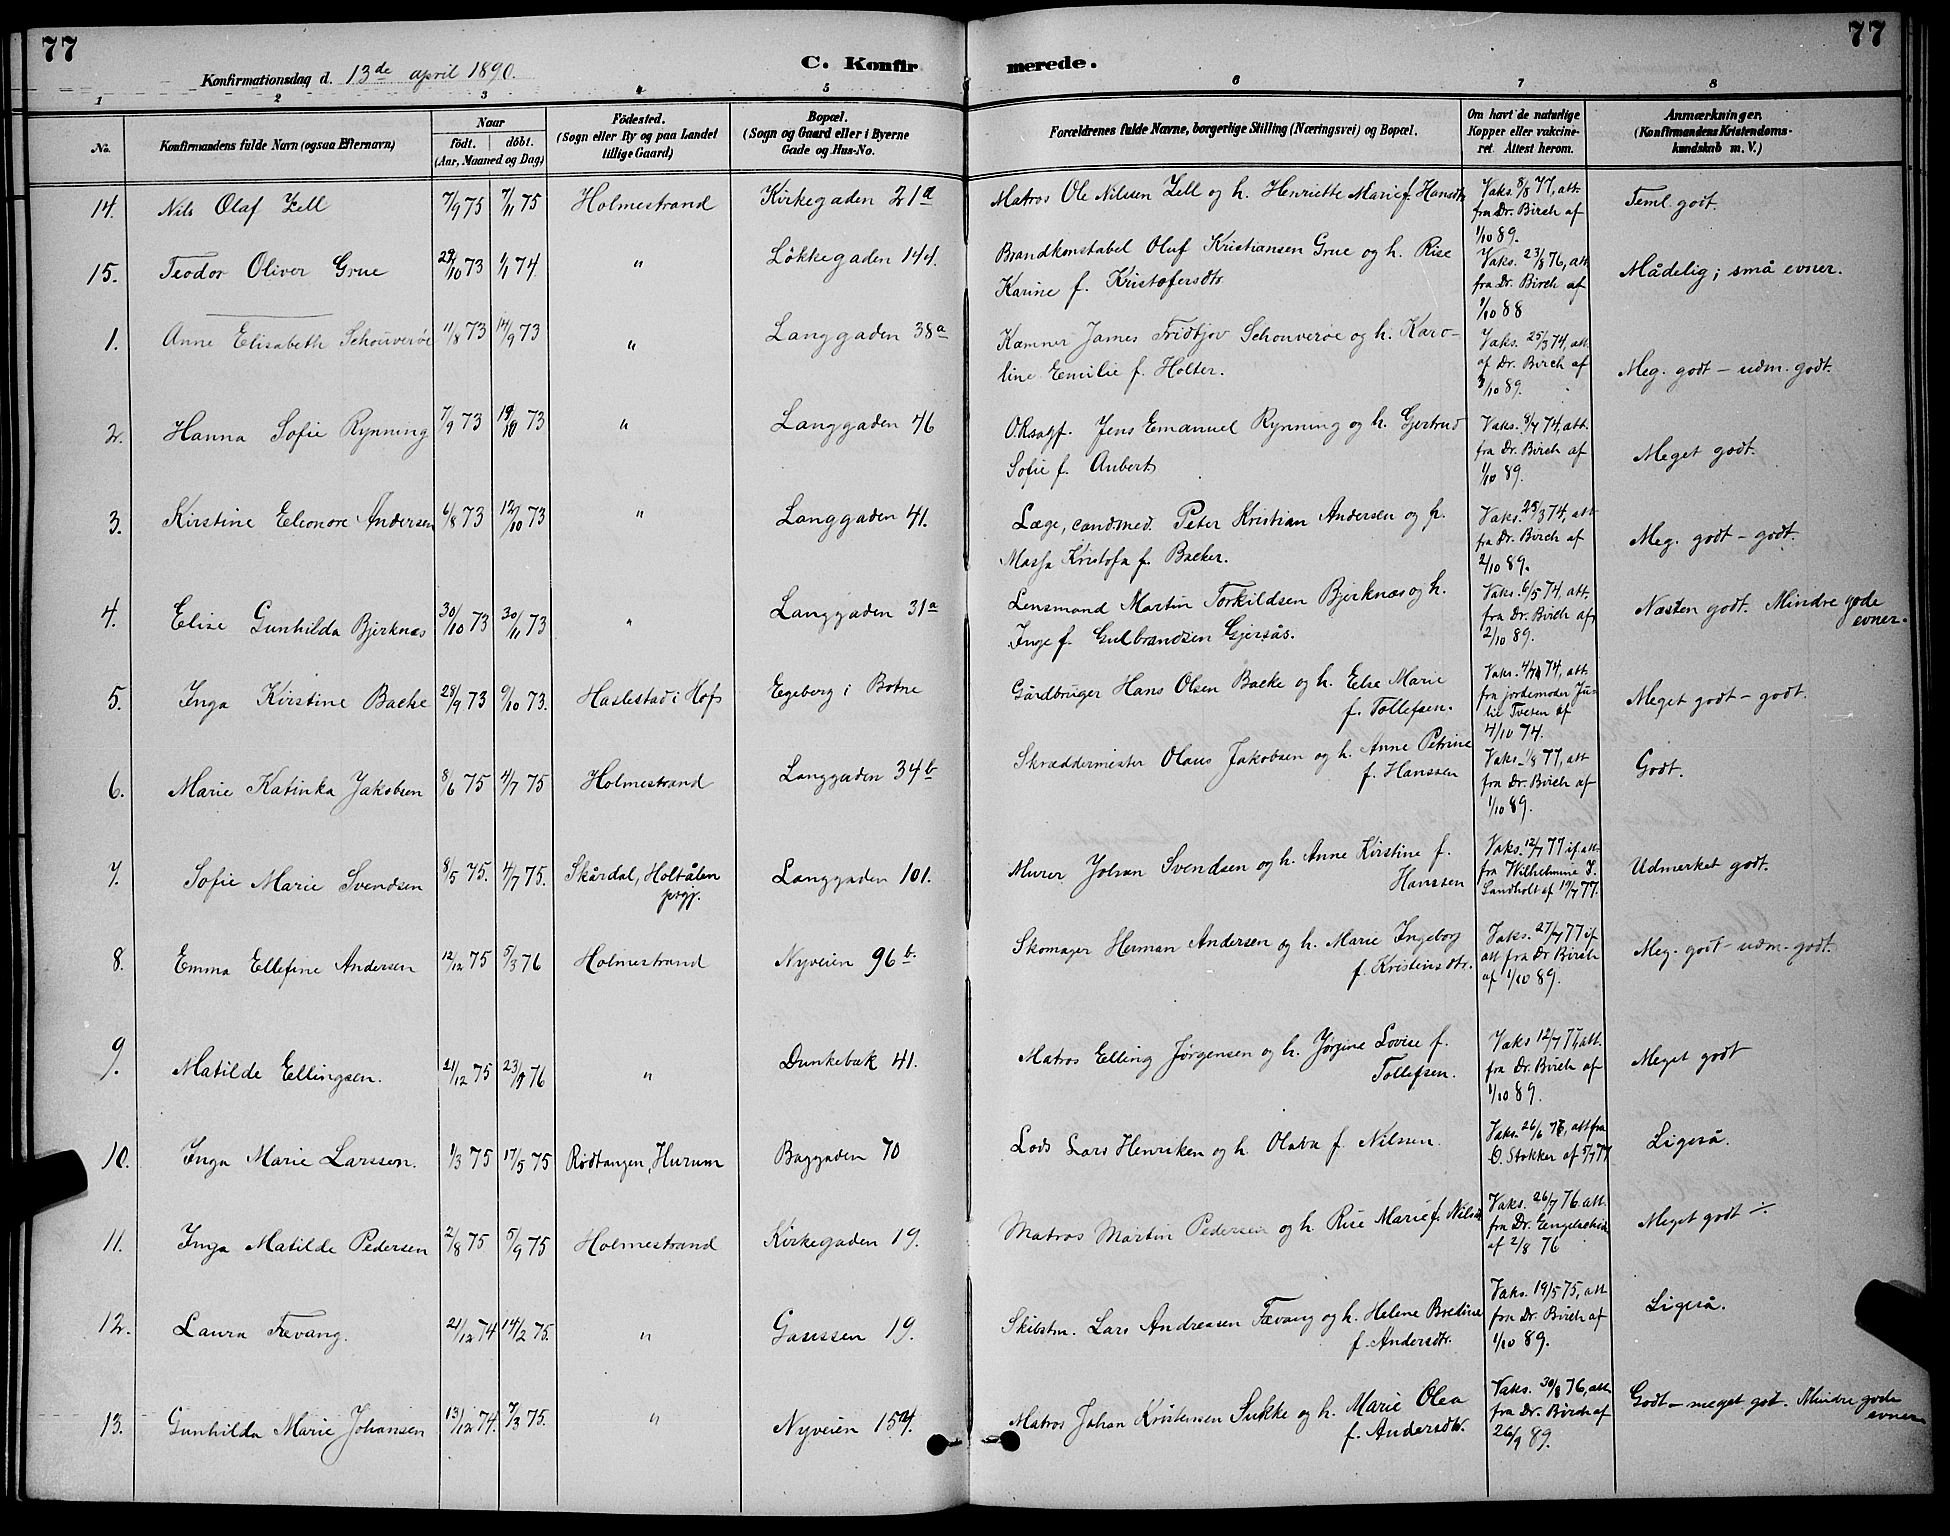 77
77
Konfirmationsdag d. 13de april 1890.
C. Konfirmerede.
1 2 3 4 5 6 7 8
No.
Konfirmandens fulde Navn (ogsaa Efternavn)
Naar
födt. döbt.
(Aar, Maaned og Dag)
Födested.
(Sogn eller By og paa Landet
tillige Gaard)
Bopæl.
(Sogn og Gaard eller i Byerne
Gade og Hus-No.
Forældrenes fulde Navne, borgerlige Stilling (Næringsvei) og Bopæl.
Om havt de naturlige
Kopper eller vakcine-
ret. Attest herom.
Anmærkninger.
(Konfirmandens Kristendoms-
kundskab m. V.)
14. Nils Olaf Zell 7/9 75 7/11 75 Holmestrand Kirkegaden 21a Matros Ole Nilsen Zell og h. Henriette Marie f. Hansdtr Vaks. 8/8 77, att.
fra Dr. Birch af
1/10 89.
Teml. godt.
15. Teodor Oliver Grue 29/10 73 1/1 74 " Løkkegaden 144. Brandkonstabel Oluf Kristiansen Grue og h. Rise
Karine f. Kristofersdtr
Vaks. 23/8 76, att.
fra Dr. Birch af
1/10 88
Mådelig; små evner.
1. Anne Elisabeth Schouverøe 11/8 73 14/9 73 " Langgaden 38a Kæmner James Fridtjov Schouverøe og h. Karo-
line Emilie f. Holter.
Vaks. 25/3 74, att.
af Dr. Birch af
3/10 89.
Meg. godt - udm. godt.
2. Hanna Sofie Rynning 7/9 73 19/10 73 " Langgaden 46 O.Rsagf. Jens Emanuel Rynning og h. Gjertrud
Sofie f. Aubert
Vaks. 8/7 74, att.
fra Dr. Birch af
1/10 89.
Meget godt.
3. Kirstine Eleonore Andersen 6/8 73 12/10 73 " Langgaden 41. Læge, cand.med. Peter Kristian Andersen og h.
Massa Kristofa f. Backer.
Vaks. 25/3 74, att
fra Dr. Birch af
2/10 89.
Meg. godt - godt.
4. Elise Gunhilda Bjerknæs 30/10 73 30/11 73 " Langgaden 31a Lensmand Martin Torkildsen Bjerknæs og h.
Inge f. Gulbrandsen Gjersøs.
Vaks. 6/5 74, att.
fra Dr. Birch af
2/10 89.
Næsten godt. Mindre gode
evner.
5. Inga Kirstine Backe 28/9 73 9/10 73. Haslestad i Hof Egeberg i Botne Gårdbruger Hans Olsen Backe og h. Else Marie
f. Tollefsen.
Vaks. 74, att
fra jordemoder Jus-
til Tveten af
4/10 74.
Meget godt - godt.
6. Marie Katinka Jakobsen 8/6 75 4/7 75 Holmestrand Langgaden 34b Skræddermester Olaus Jakobsen og h. Anne Petrine
f. Hanssen
Vaks. 1/8 77, att
fra Dr. Birch af
1/10 89.
Godt.
7. Sofie Marie Svendsen 8/5 75. 4/7 75. Skårdal, Holtålen
prgj.
Langgaden 101. Murer Johan Svendsen og h. Anne Kirstine f.
Hanssen
Vaks. 12/7 77 if. att.
fra Wilhelmine I.
Landholt af 19/7 77.
Udmerket godt.
8. Emma Ellefine Andersen 12/12 75 5/3 76 Holmestrand Nyveien 96b. Skomager Herman Andersen og h. Marie Ingeborg
f. Kristinsdtr.
Vaks. 27/7 77 if
att fra Dr Birch
af 1/10 89.
Meg. godt - udm. godt.
9. Matilde Ellingsen. 21/12 75 23/9 76 " Dunkebæk 41. Matros Elling Jørgensen og h. Jørgine Lovise f.
Tollefsen.
Vaks 12/7 77, att.
fra Dr. Birch af
1/10 89.
Meget godt
10. Inga Marie Larssen. 1/3 75 17/5 75 Rødtangen, Hurum Baggaden 70 Lods Lars Henriksen og h. Olava f. Nilsen. Vaks. 26/6 76, att fra
O. Stokker af 5/7 77
Ligeså.
11. Inga Matilde Pedersen 2/8 75 5/9 75 Holmestrand Kirkegaden 19. Matros Martin Pedersen og h. Rise Marie f. Nilsen Vaks. 26/7 76. att.
fra Dr.
af 2/8 76
Meget godt ÷
12. Laura Trevang. 21/12 74 14/2 75 " Gaussen 19. Skibstm. Lars Andreasen Trevang og h. Helene Bredine
f. Andersdtr.
Vaks. 19/5 75, att
fra Dr. Birch af
1/10 89.
Ligeså.
13. Gunhilda Marie Johansen 13/12 74. 7/3 75. " Nyveien 154. Matros Johan Kristensen Sukke og h. Marie Olea
f. Andersdtr.
Vaks. 30/8 76, att.
fra Dr. Birch af
26/9 89.
Godt - meget godt. Mindre gode
evner